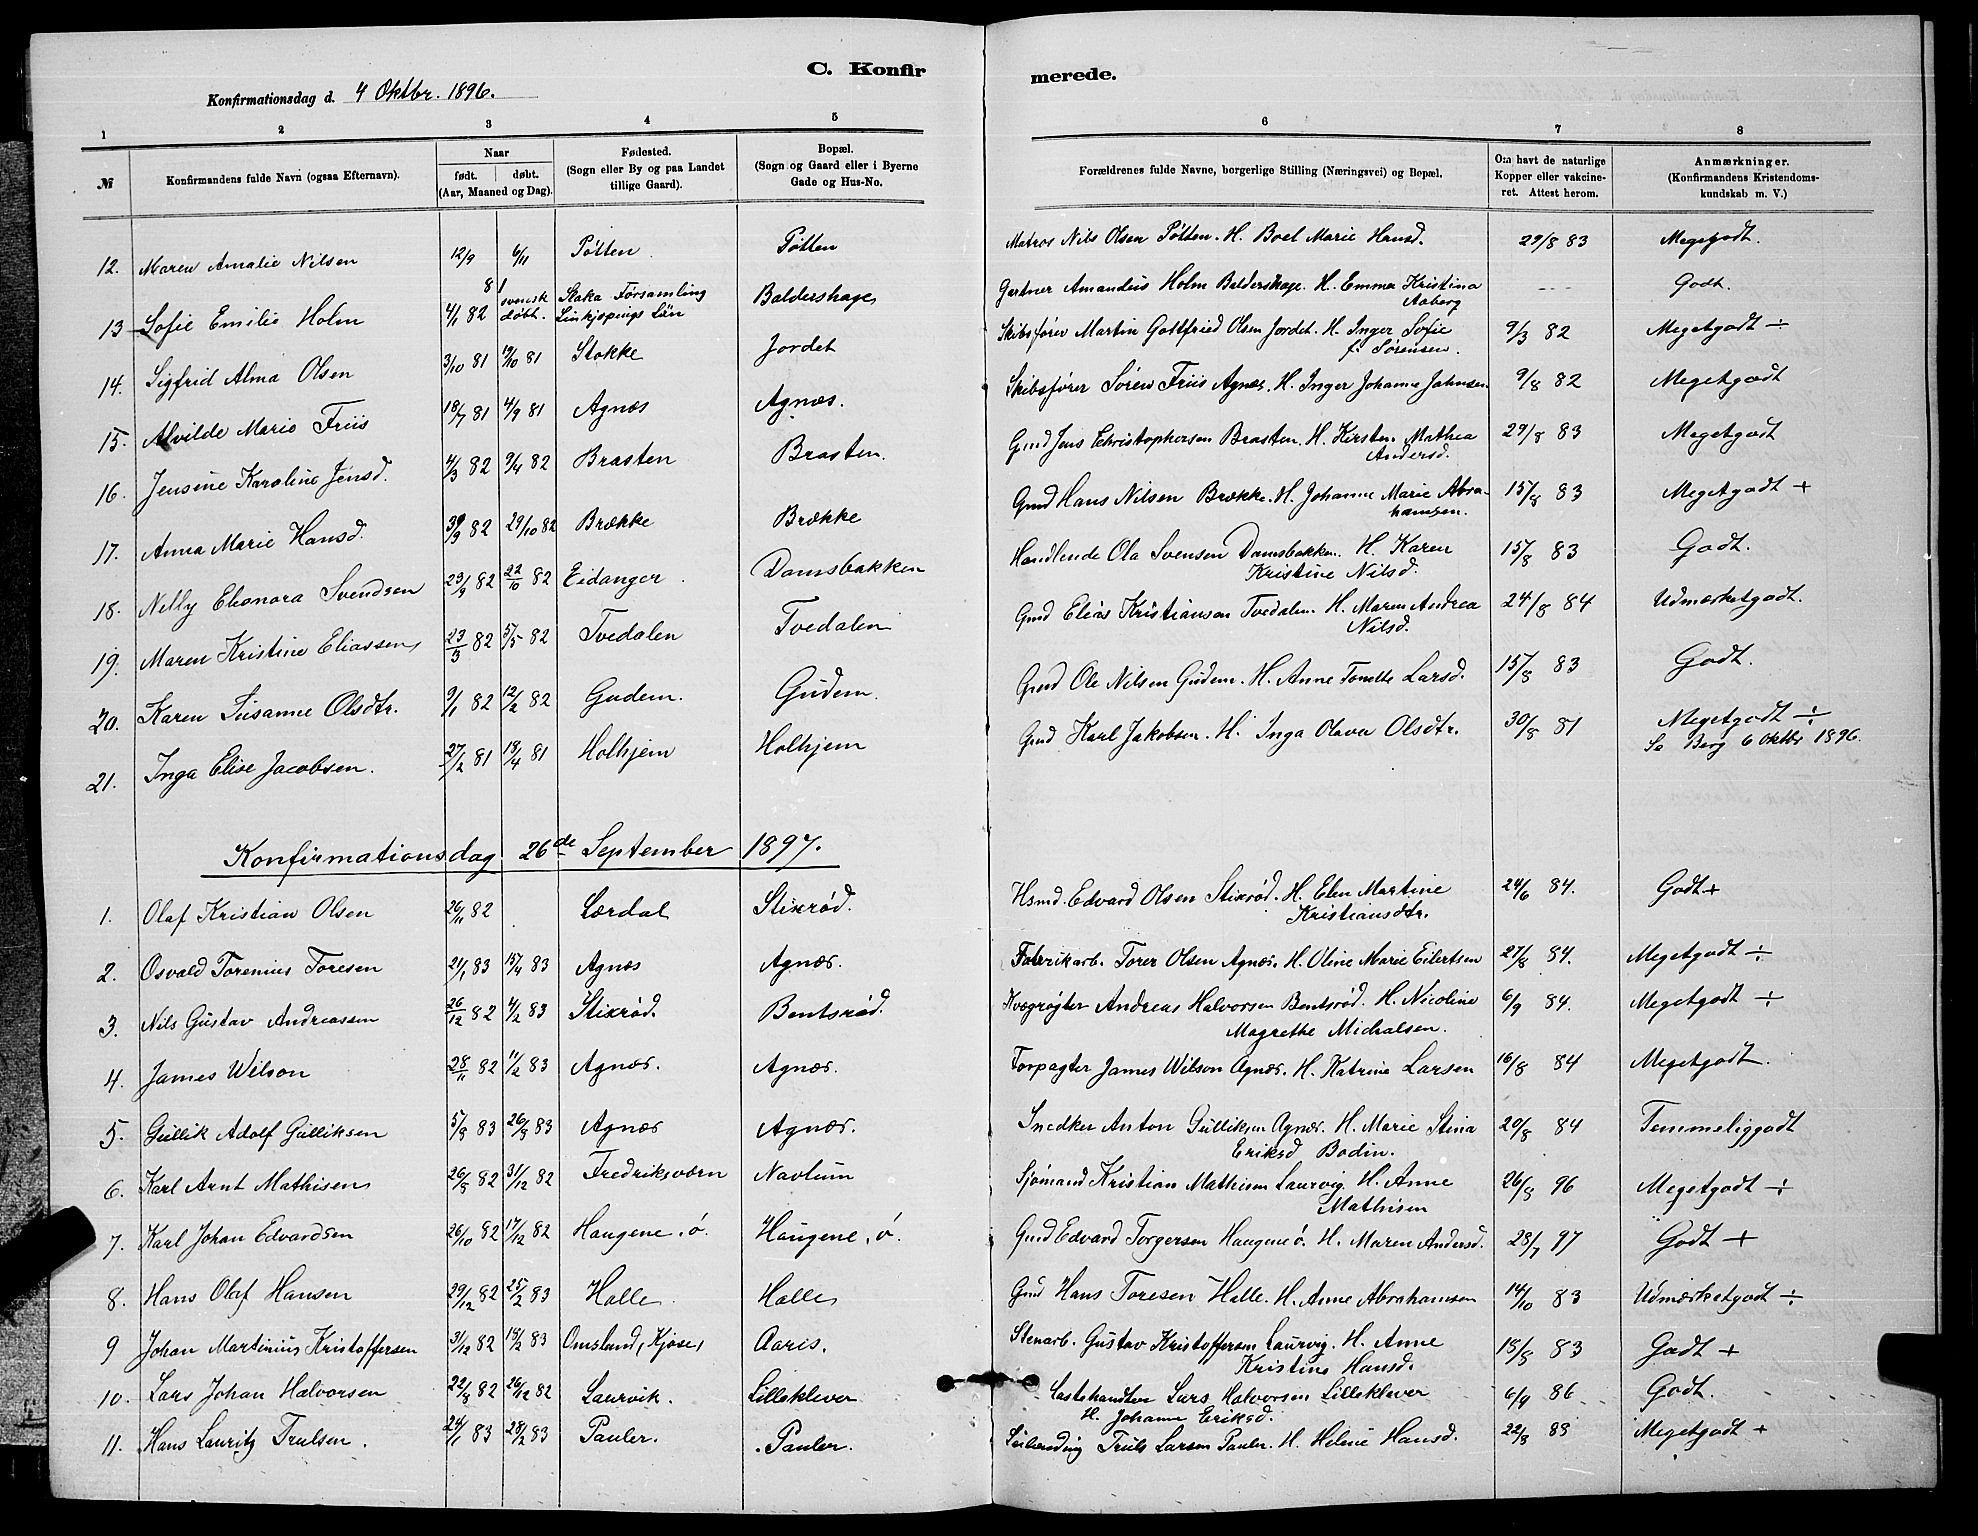 C. Konfir
merede.
Konfirmationsdag d. 4 Oktbr. 1896.
1 2 3 4 5 6 7 8
№ Konfirmandens fulde Navn (ogsaa Efternavn). Naar født. døbt. (Aar, Maaned og Dag). Fødested. (Sogn eller By og paa Landet tillige Gaard). Bopæl. (Sogn og Gaard eller i Byerne Gade og Hus-No. Forældrenes fulde Navne, borgerlige Stilling (Næringsvei) og Bopæl. Om havt de naturlige Kopper eller vakcineret. Attest herom. Anmærkninger. (Konfirmandens Kristendomskundskab m. V.)
12. Maren Amalie Nilsen 12/9 6/11 81 Pøtten. Pøtten Matros Nils Olsen Pøtten. H. Boel Marie Hansd. 29/8 83 Megetgodt.
13 Sofie Emilie Holm 4/1 82 svensk døbt. Slaka Församling Linkjøpings Län Baldershage Gartner Amandus Holm Baldershage. H. Emma Kristina Aaberg --- Godt.
14. Sigfrid Alma Olsen 3/10 81 19/10 81 Stokke Jordet Skibsfører Martin Gottfried Olsen Jordet. H. Inger Sofie f. Sørensen. 9/3 82 Megetgodt ÷
15. Alvilde Marie Friis 18/7 81 4/9 81 Agnæs Agnæs. Skibsfører Søren Friis Agnæs. H. Inger Johanne Johnsen 9/8 82 Megetgodt
16. Jensine Karoline Jensd. 4/3 82 9/4 82 Brasten Brasten. Gmd Jens Christophersen Brasten. H. Kirsten Mathea Andersd. 29/8 83 Megetgodt
17. Anna Marie Hansd. 30/9 82 29/10 82 Brække Brække Gmd Hans Nilsen Brække. H. Johanne Marie Abrahamsen. 15/8 83 Megetgodt +
18. Nelly Eleonora Svendsen 23/9 82 22/10 82 Eidanger. Damsbakken Handlende Ola Svensen Damsbakken. H. Karen Kristine Nilsd. 15/8 83 Godt.
19. Maren Kristine Eliassen 23/3 82 5/5 82 Tvedalen Tvedalen Gmd Elias Kristiansen Tvedalen. H. Maren Andrea Nilsd. 24/8 84 Udmærketgodt.
20. Karen Susanne Olsdtr. 9/1 82 12/2 82 Gudem. Gudem. Gmd Ole Nilsen Gudem. H. Anne Tonette Larsd. 15/8 83 Godt.
21. Inga Elise Jacobsen. 27/2 81 18/4 81 Holhjem Holhjem Gmd Karl Jakobsen. H. Inga Olava Olsdtr. 30/8 81 Megetgodt ÷ Berg 6 Oktbr 1896.
Konfirmationsdag 26de September 1897.
1. Olaf Kristian Olsen 26/11 82 Lærdal Stixrød. Hsmd. Edvard Olsen Stixrød. H. Elen Martine Kristiansdtr. 24/6 84. Godt +
2. Osvald Torenius Toresen 21/1 83 15/4 83 Agnæs Agnæs. Fabrikarb. Torer Olsen Agnæs. H. Oline Marie Eilertsen 27/8 84. Megetgodt ÷
3. Nils Gustav Andreassen 26/12 82 4/2 83 Stixrød. Bentsrød. Kvægrøgter Andreas Halvorsen Bentsrød. H. Nicoline Magrethe Michalsen. 6/9 84. Megetgodt ÷
4. James Wilson 28/11 82 11/2 83 Agnæs. Agnæs. Forpagter James Wilson Agnæs. H. Katrine Larsen 16/8 84 Megetgodt.
5. Gullik Adolf Gulliksen 5/8 83 26/8 83 Agnæs Agnæs. Snedker Anton Gulliksen Agnæs. H. Marie Stina Eriksd Bodin. 20/8 84 Temmeliggodt
6. Karl Arnt Mathisen 26/8 82 31/12 82 Fredriksværn Navlum Sjømand Kristian Mathisen Laurvig. H. Anne Mathisen 26/8 96 Megetgodt ÷
7. Karl Johan Edvardsen 26/10 82 17/12 82 Haugene, ø. Haugene, ø. Gmd Edvard Torgersen Haugene ø. H. Maren Andersd. 28/7 97 Godt +
8. Hans Olaf Hansen 29/12 82 25/2 83 Halle Halle Gmd Hans Toresen Halle. H. Anne Abrahamsen 14/10 83 Udmærketgodt ÷
9 Johan Martinius Kristoffersen 31/12 82 18/2 83 Omsland, Kjose, Aaris. Stenarb. Gustav Kristoffersen Laurvig. H. Anne Kristine Hansd. 15/8 83 Godt +
10. Lars Johan Halvorsen 22/8 82 26/12 82 Laurvik. Lilleklever Lars Halvorsen Lilleklever H. Johanne Eriksd. 6/9 86 Godt.
11. Hans Lauritz Trulsen. 24/1 83 28/2 83 Pauler. Pauler. Truls Larsen Pauler. H. Helene Hansd. 22/8 83 Megetgodt +